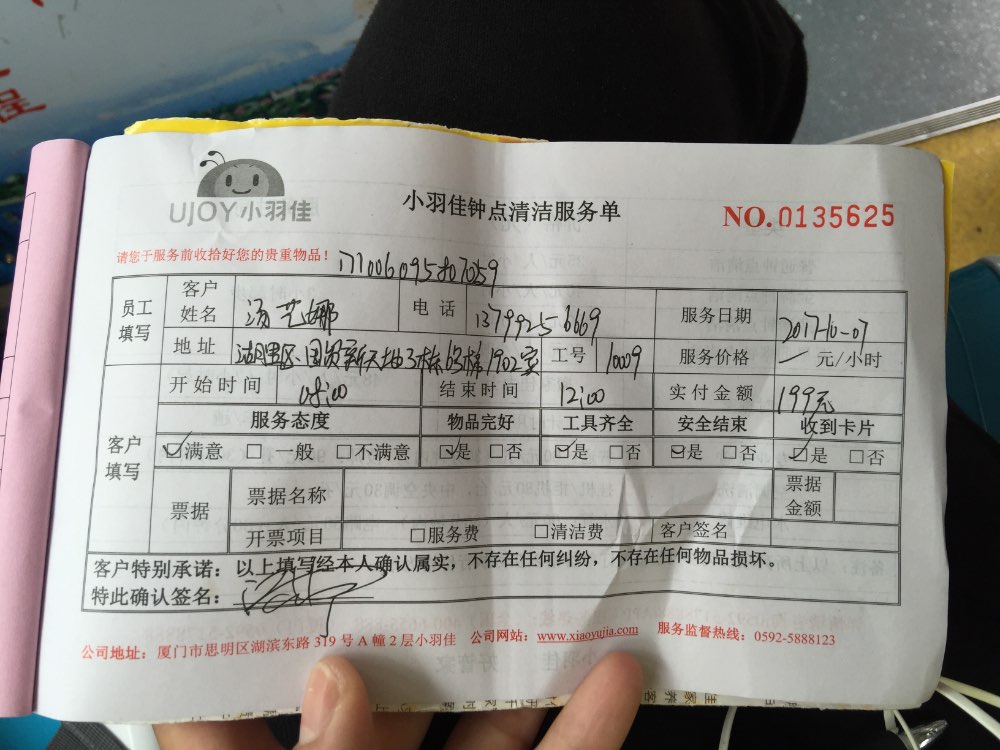 程
UJOY小羽佳
小羽佳钟点清洁服务单
NO.0135625
请您于服务前收拾好您的贵重物品！
171006095807059
员工填写
客户姓名 汤艺娜 电话 13799256669 服务日期 2017-10-07
地址 湖里区、国贸新天地3栋63梯1902室 工号 10009 服务价格 一 元/小时
开始时间 08:00 结束时间 12:00 实付金额 199元
客户填写
服务态度 物品完好 工具齐全 安全结束 收到卡片
☑满意 □一般 □不满意 ☑是 □否 ☑是 □否 ☑是 □否 ☑是 □否
票据 票据名称 票据金额
开票项目 □服务费 □清洁费 客户签名
客户特别承诺：以上填写经本人确认属实，不存在任何纠纷，不存在任何物品损坏。
特此确认签名：
公司地址：厦门市思明区湖滨东路319号A幢2层小羽佳 公司网站：www.xiaoyujia.com 服务监督热线：0592-5888123